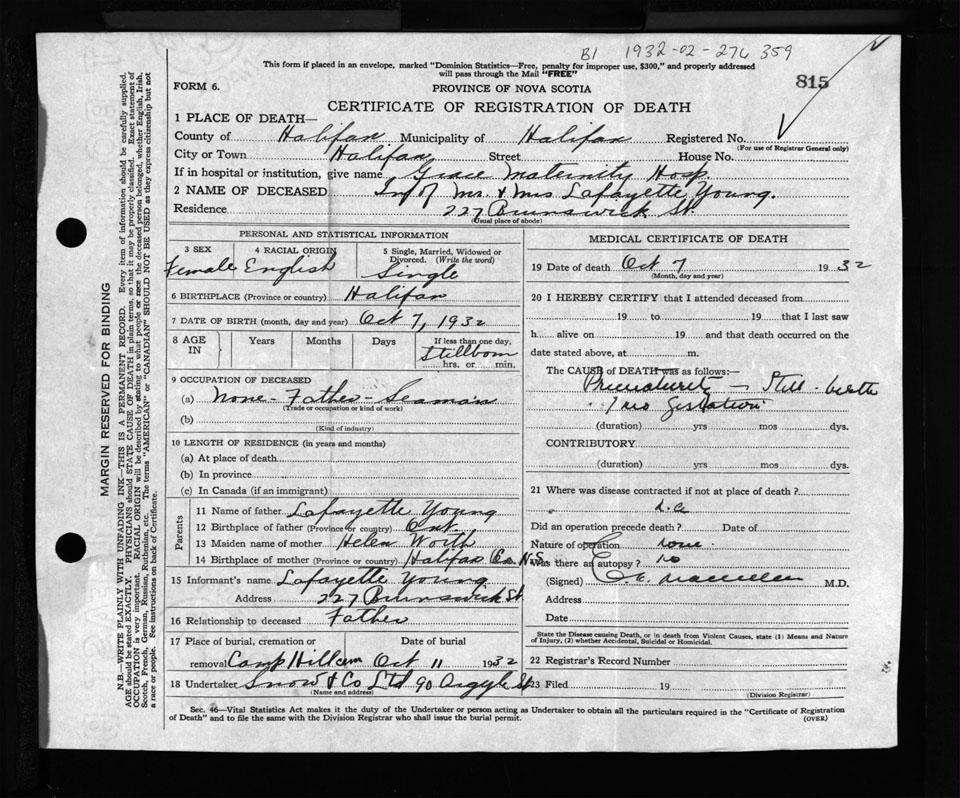 B1 1932-02-276 359
This form if placed in an envelope, marked "Dominion Statistics—Free, penalty for improper use, $300," and properly addressed
will pass through the Mail "FREE"
815
FORM 6.
PROVINCE OF NOVA SCOTIA
CERTIFICATE OF REGISTRATION OF DEATH
1 PLACE OF DEATH—
County of Halifax Municipality of Halifax Registered No.
(For use of Registrar General only)
City or Town Halifax Street House No.
If in hospital or institution, give name Grace Maternity Hosp.
2 NAME OF DECEASED Inf of Mr. & Mrs Lafayette Young.
Residence 227 Brunswick St.
(Usual place of abode)
PERSONAL AND STATISTICAL INFORMATION
3 SEX Female
4 RACIAL ORIGIN English
5 Single, Married, Widowed or Divorced. (Write the word)
Single
6 BIRTHPLACE (Province or country) Halifax
7 DATE OF BIRTH (month, day and year) Oct 7, 1932
8 AGE IN Years Months Days If less than one day,
Stillborn
hrs. or min.
9 OCCUPATION OF DECEASED
(a) None - Father - Seaman
(Trade or occupation or kind of work)
(b)
(Kind of industry)
10 LENGTH OF RESIDENCE (in years and months)
(a) At place of death
(b) In province
(c) In Canada (if an immigrant)
Parents
11 Name of father Lafayette Young
12 Birthplace of father (Province or country) Ont.
13 Maiden name of mother Helen Worth
14 Birthplace of mother (Province or country) Halifax Co. N.S.
15 Informant's name Lafayette Young
Address 227 Brunswick St
16 Relationship to deceased Father
17 Place of burial, cremation or Date of burial
removal Camp Hill Cem Oct 11 1932
18 Undertaker Snow & Co Ltd 90 Argyle St
(Name and address)
MEDICAL CERTIFICATE OF DEATH
19 Date of death Oct 7 1932
(Month, day and year)
20 I HEREBY CERTIFY that I attended deceased from
19 to 19 that I last saw
h alive on 19 and that death occurred on the
date stated above, at m.
The CAUSE of DEATH was as follows:—
Prematurity — Still-birth
7 mo gestation
(duration) yrs mos dys.
CONTRIBUTORY
(duration) yrs mos dys.
21 Where was disease contracted if not at place of death?
Did an operation precede death? Date of
Nature of operation none.
Was there an autopsy? no
(Signed) M.D.
Address
Date
State the Disease causing Death, or in death from Violent Causes, state (1) Means and Nature
of Injury, (2) whether Accidental, Suicidal or Homicidal.
22 Registrar's Record Number
23 Filed 19
(Division Registrar)
Sec. 46—Vital Statistics Act makes it the duty of the Undertaker or person acting as Undertaker to obtain all the particulars required in the "Certificate of Registration
of Death" and to file the same with the Division Registrar who shall issue the burial permit.
(OVER)
MARGIN RESERVED FOR BINDING
N.B.—WRITE PLAINLY WITH UNFADING INK—THIS IS A PERMANENT RECORD. Every item of information should be carefully supplied.
AGE should be stated EXACTLY. PHYSICIANS should STATE CAUSE OF DEATH in plain terms, so that it may be properly classified. Exact statement of
OCCUPATION is very important. RACIAL ORIGIN will be described by stating to what people or race the deceased person belonged, whether English, Irish,
Scotch, French, German, Russian, Ruthenian, etc. The terms "AMERICAN" or "CANADIAN" SHOULD NOT BE USED as they express citizenship but not
a race or people. See instructions on back of Certificate.